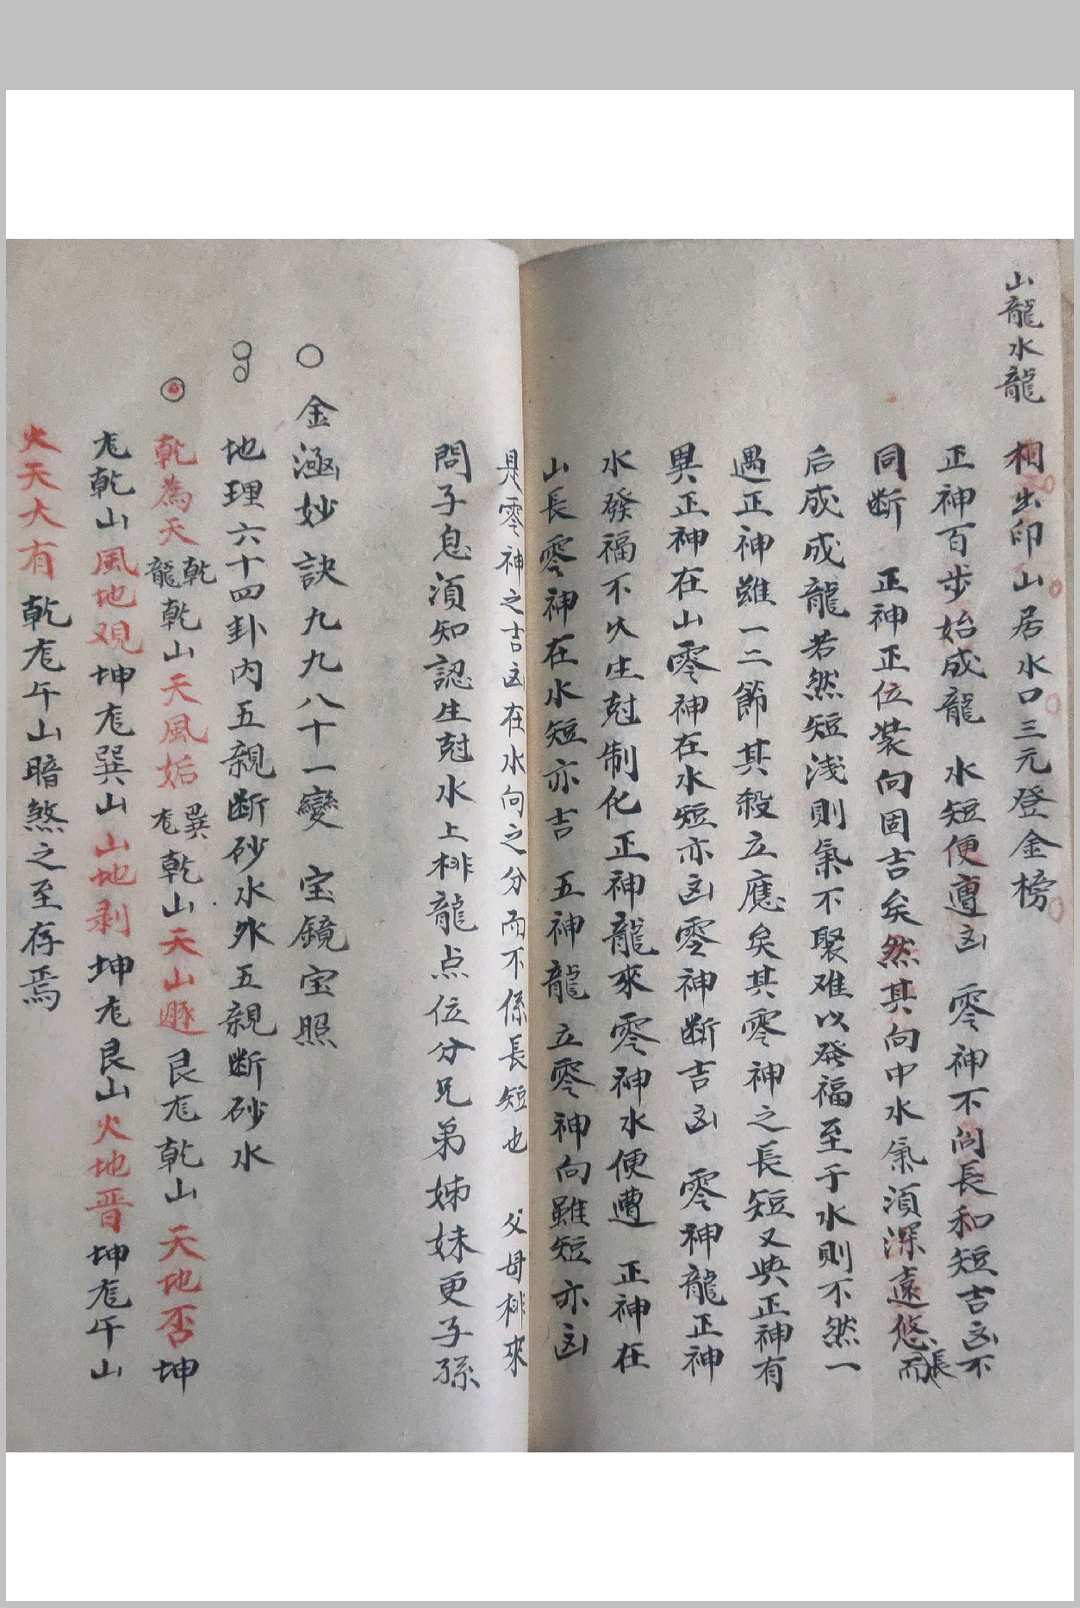 山龍水龍
相出印山居水口三元登金榜
正神百步始成龍 水短便遭凶 零神不问長和短吉凶不
同断 正神正位裝向固吉矣然其向中水氣須深遠悠長而
后成成龍若然短淺則氣不聚难以發福至于水則不然一
遇正神雖一二節其殺立應矣其零神之長短又與正神有
異正神在山零神在水短亦凶零神断吉凶 零神龍正神
水發福不火生尅制化正神龍來零神水便遭 正神在
山長零神在水短亦吉 五神龍立零神向雖短亦凶
是零神之吉凶在水向之分而不係長短也 父母排來
問子息須知認生尅水上排龍点位分兄弟姊妹更子孫
○金涵妙訣九九八十一變 宝鏡宝照
地理六十四卦内五親断砂水外五親断砂水
乾為天乾龍乾山天風姤巽龙乾山天山遯艮龙乾山天地否坤
龙乾山風地观坤龙巽山山地剥坤龙艮山火地晋坤龙午山
火天大有乾龙午山暗煞之至存焉